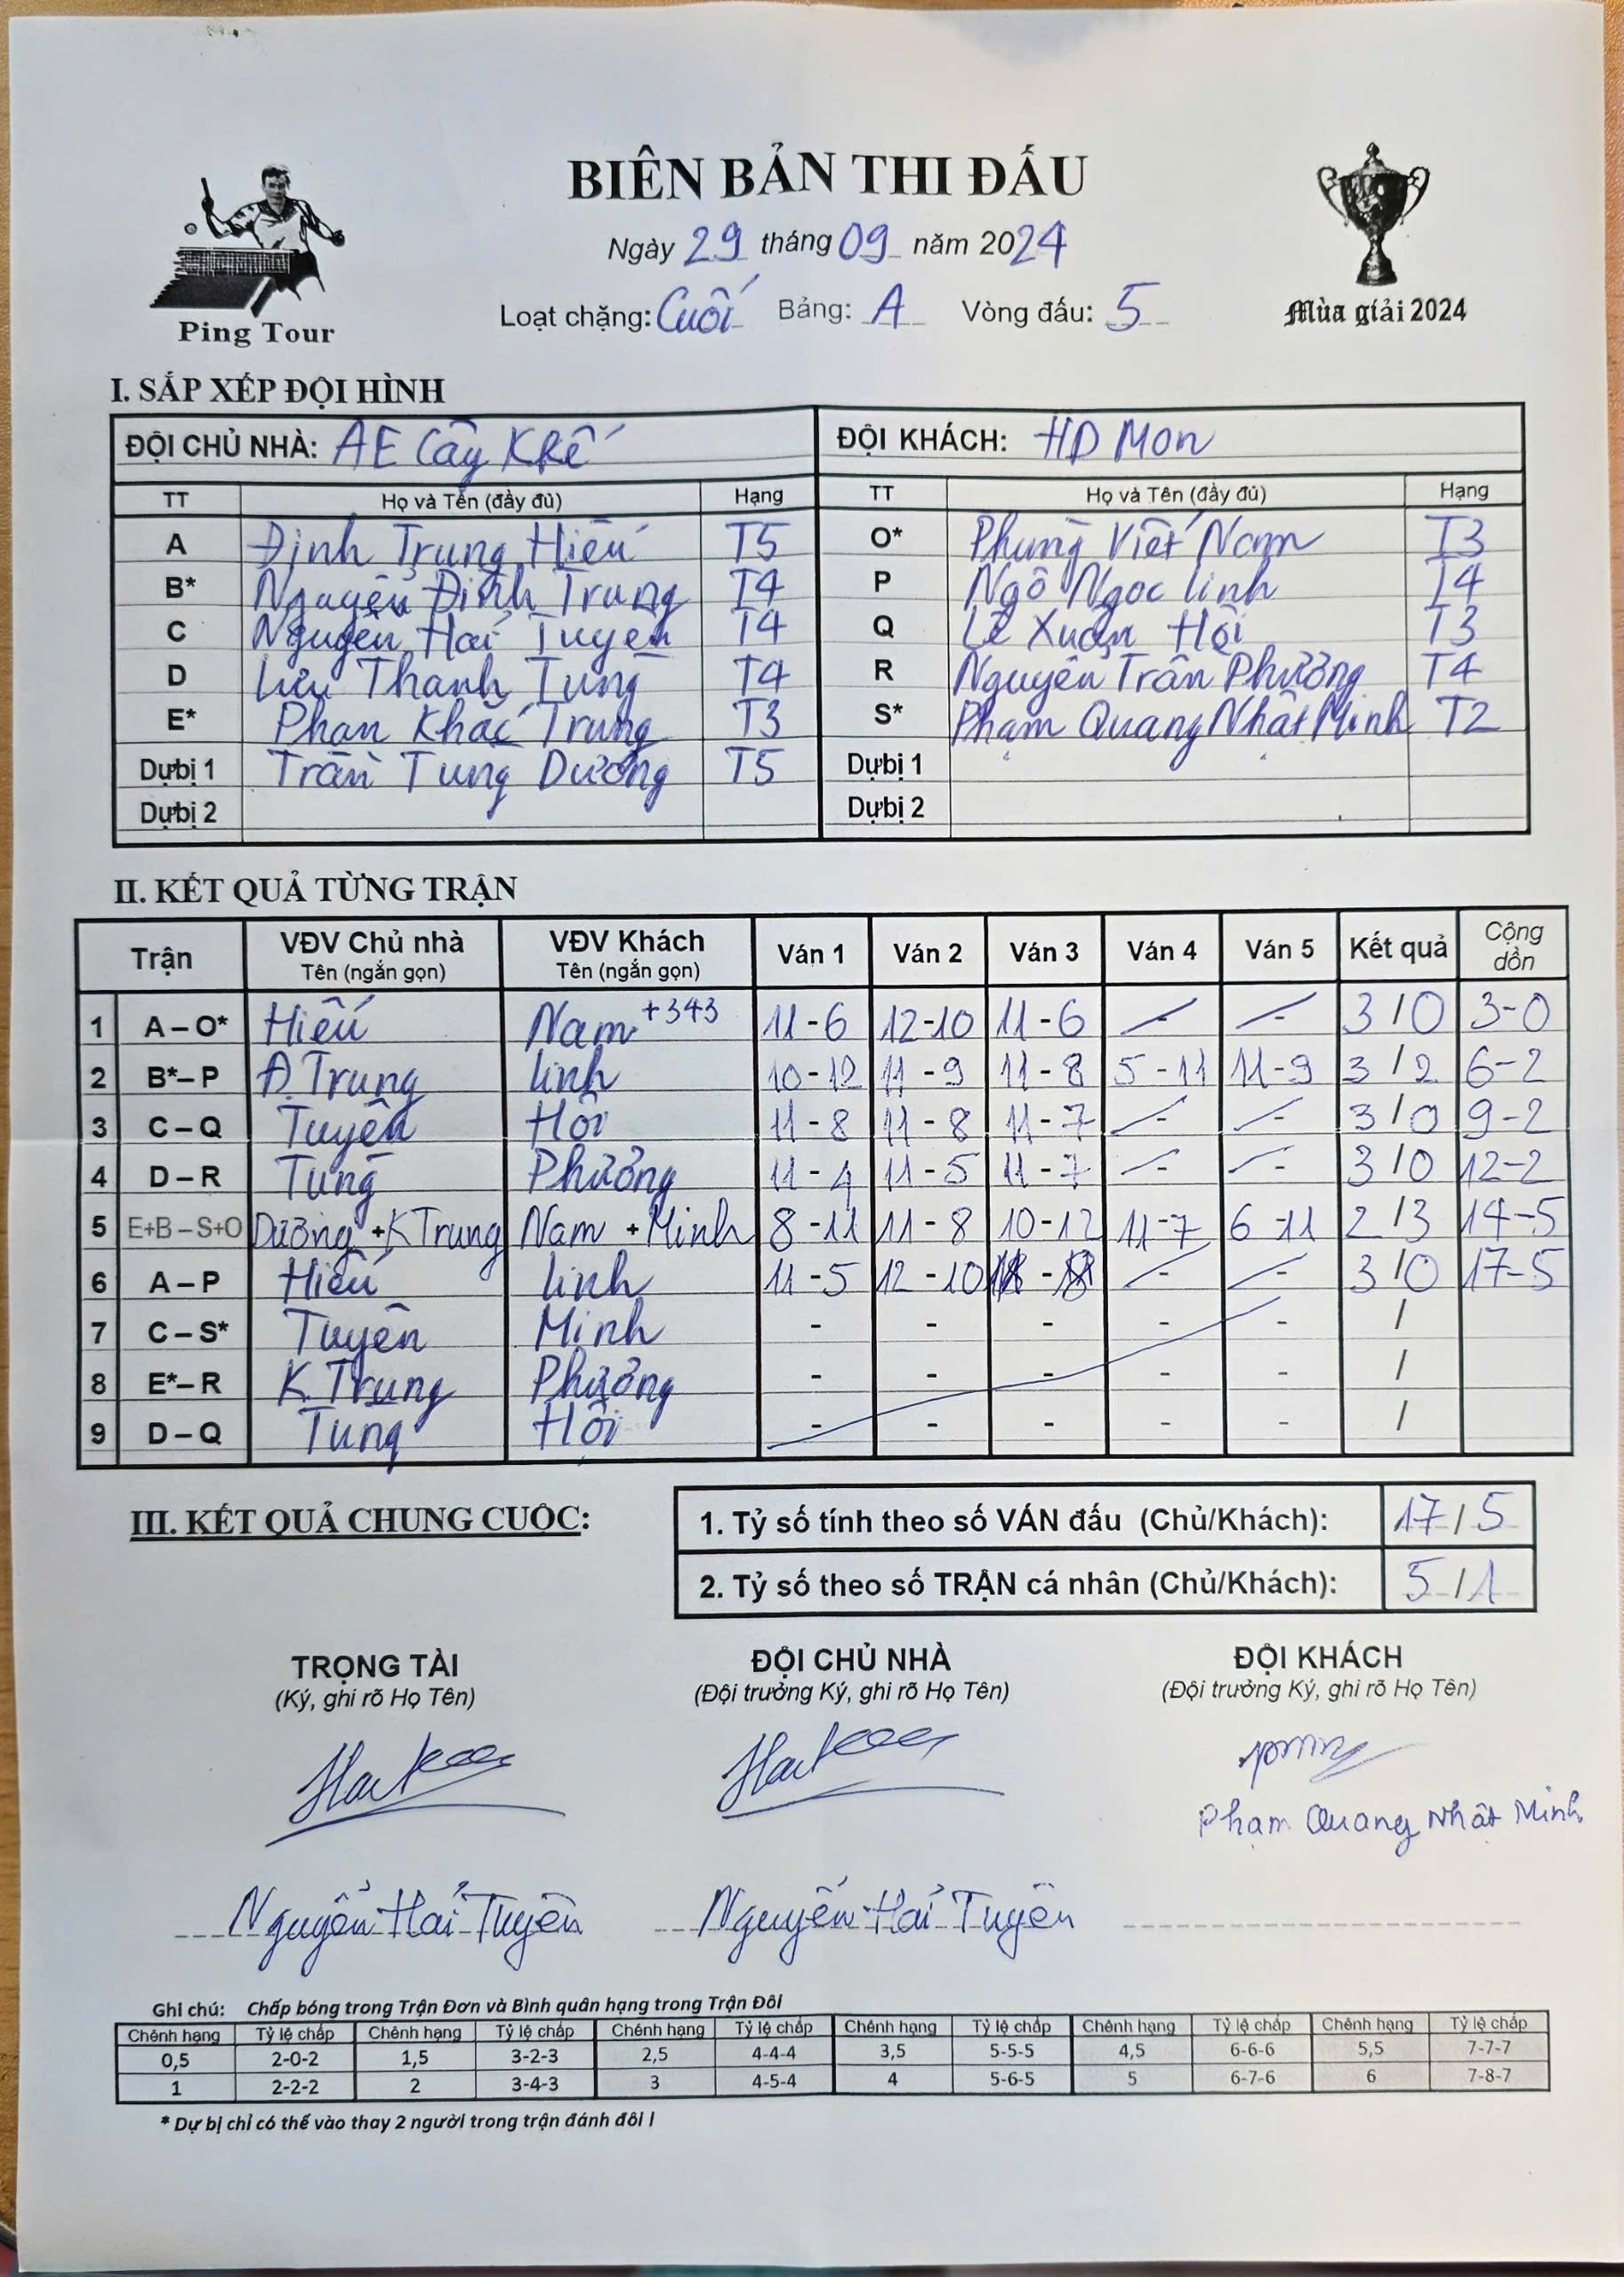 BIÊN BẢN THI ĐẤU
Ngày 29 tháng 09 năm 2024
Loạt chặng: Cuối Bảng: A Vòng đấu: 5
Ping Tour
Mùa giải 2024
I. SẮP XẾP ĐỘI HÌNH
ĐỘI CHỦ NHÀ: AE Cây Khế ĐỘI KHÁCH: HD Mon
TT Họ và Tên (đầy đủ) Hạng TT Họ và Tên (đầy đủ) Hạng
A Định Trung Hiếu T5 O* Phùng Việt Nam T3
B* Nguyễn Đình Trung T4 P Ngô Ngọc Linh T4
C Nguyễn Hải Tuyên T4 Q Lê Xuân Hội T3
D Lưu Thanh Tùng T4 R Nguyễn Trần Phương T4
E* Phan Khắc Trung T3 S* Phạm Quang Nhật Minh T2
Dự bị 1 Trần Tung Dương T5 Dự bị 1
Dự bị 2 Dự bị 2
II. KẾT QUẢ TỪNG TRẬN
Trận VĐV Chủ nhà Tên (ngắn gọn) VĐV Khách Tên (ngắn gọn) Ván 1 Ván 2 Ván 3 Ván 4 Ván 5 Kết quả Cộng dồn
1 A – O* Hiếu Nam +343 11-6 12-10 11-6 - - 3/0 3-0
2 B* – P Đ.Trung Linh 10-12 11-9 11-8 5-11 11-9 3/2 6-2
3 C – Q Tuyên Hội 11-8 11-8 11-7 - - 3/0 9-2
4 D – R Tùng Phương 11-4 11-5 11-7 - - 3/0 12-2
5 E+B – S+O Dương + K Trung Nam + Minh 8-11 11-8 10-12 11-7 6-11 2/3 14-5
6 A – P Hiếu Linh 11-5 12-10 - - 3/0 17-5
7 C – S* Tuyên Minh - - - - - /
8 E* – R K.Trung Phương - - - - - /
9 D – Q Tùng Hội - - - - - /
III. KẾT QUẢ CHUNG CUỘC:
1. Tỷ số tính theo số VÁN đấu (Chủ/Khách): 17/5
2. Tỷ số theo số TRẬN cá nhân (Chủ/Khách): 5/1
TRỌNG TÀI ĐỘI CHỦ NHÀ ĐỘI KHÁCH
(Ký, ghi rõ Họ Tên) (Đội trưởng Ký, ghi rõ Họ Tên) (Đội trưởng Ký, ghi rõ Họ Tên)
Phạm Quang Nhật Minh
Nguyễn Hải Tuyên Nguyễn Hải Tuyên
Ghi chú: Chấp bóng trong Trận Đơn và Bình quân hạng trong Trận Đôi
Chênh hạng Tỷ lệ chấp Chênh hạng Tỷ lệ chấp Chênh hạng Tỷ lệ chấp Chênh hạng Tỷ lệ chấp Chênh hạng Tỷ lệ chấp Chênh hạng Tỷ lệ chấp
0,5 2-0-2 1,5 3-2-3 2,5 4-4-4 3,5 5-5-5 4,5 6-6-6 5,5 7-7-7
1 2-2-2 2 3-4-3 3 4-5-4 4 5-6-5 5 6-7-6 6 7-8-7
* Dự bị chỉ có thể vào thay 2 người trong trận đánh đôi !